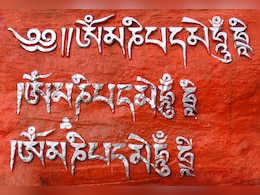 ༄༅། །ཨོཾ་མ་ཎི་པད་མེ་ཧཱུྃ་ཧྲཱི
ཨོཾ་མ་ཎི་པད་མེ་ཧཱུྃ་ཧྲཱི
ཨོཾ་མ་ཎི་པད་མེ་ཧཱུྃ་ཧྲཱི